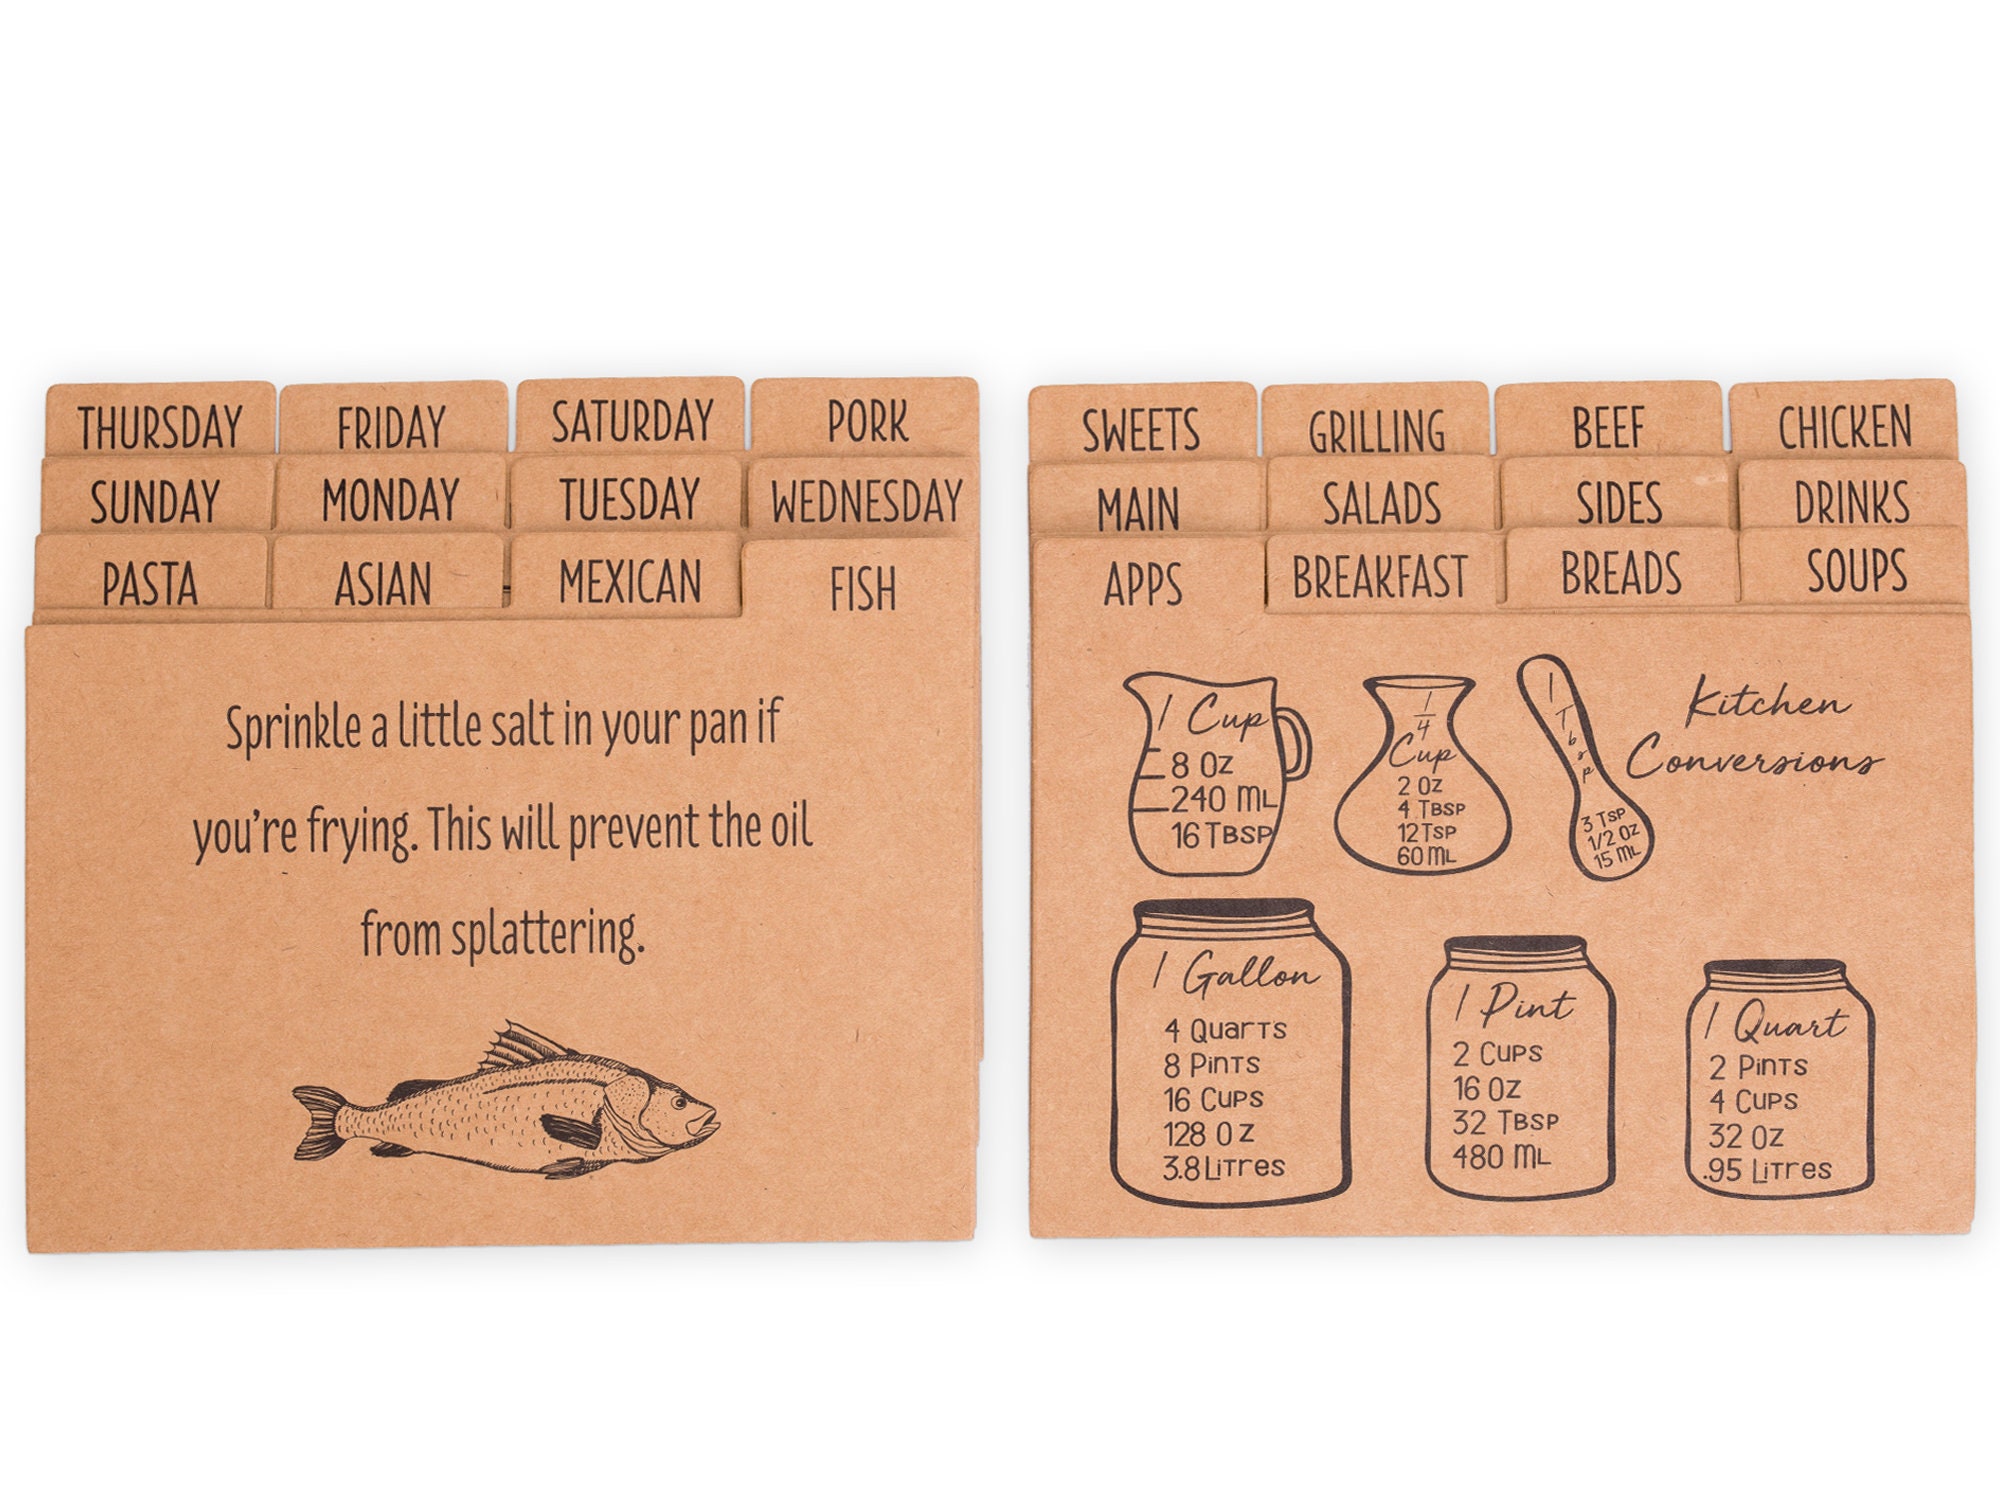 THURSDAY
FRIDAY
SATURDAY
PORK
SUNDAY
MONDAY
TUESDAY
WEDNESDAY
PASTA
ASIAN
MEXICAN
FISH
Sprinkle a little salt in your pan if
you're frying. This will prevent the oil
from splattering.
SWEETS
GRILLING
BEEF
CHICKEN
MAIN
SALADS
SIDES
DRINKS
APPS
BREAKFAST
BREADS
SOUPS
1 Cup
8 Oz
240 ML
16 TBSP
1/4
Cup
2 Oz
4 TBSP
12 TSP
60 ML
1 Tbsp
3 TSP
1/2 Oz
15 ML
Kitchen
Conversions
1 Gallon
4 QUARTS
8 PINTS
16 CUPS
128 OZ
3.8 LITRES
1 Pint
2 CUPS
16 OZ
32 TBSP
480 ML
1 Quart
2 PINTS
4 CUPS
32 OZ
.95 LITRES